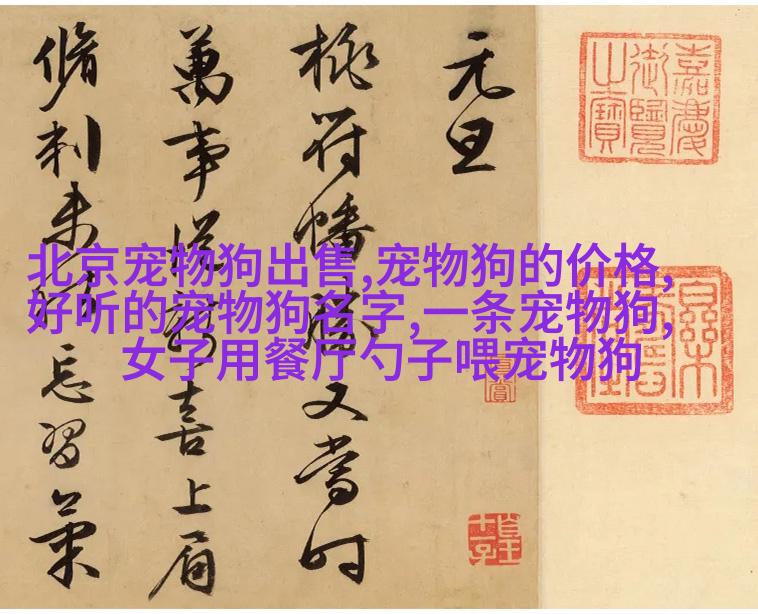 北京宠物狗出售,宠物狗的价格,
好听的宠物狗名字,一条宠物狗,
女子用餐厅勺子喂宠物狗
嘉慶
御覽
之寶
元旦
桃符幡勝又當時
萬事從新喜上眉
脩刺未忘習